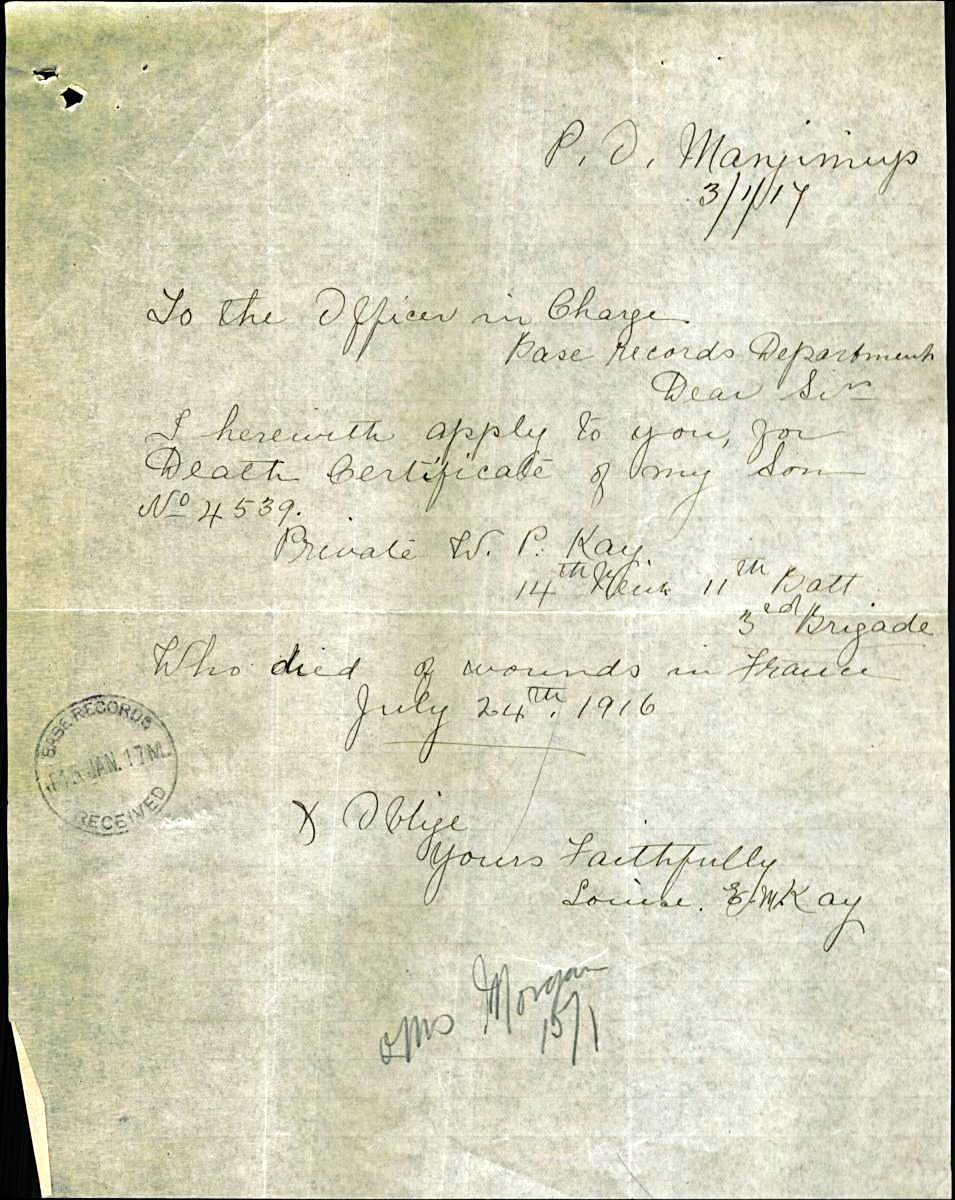 P. O. Manjimup
3/1/17
To the Officer in Charge
Base Records Department
Dear Sir
I herewith apply to you, for
Death Certificate of my Son
No 4539.
Private W. P. Kay
14th Rein 11th Batt
3rd Brigade
Who died of wounds in France
July 24th. 1916
& Oblige
Yours Faithfully
Louise. E. M. Kay
BASE RECORDS
JAN. 17
RECEIVED
Morgan
15/1